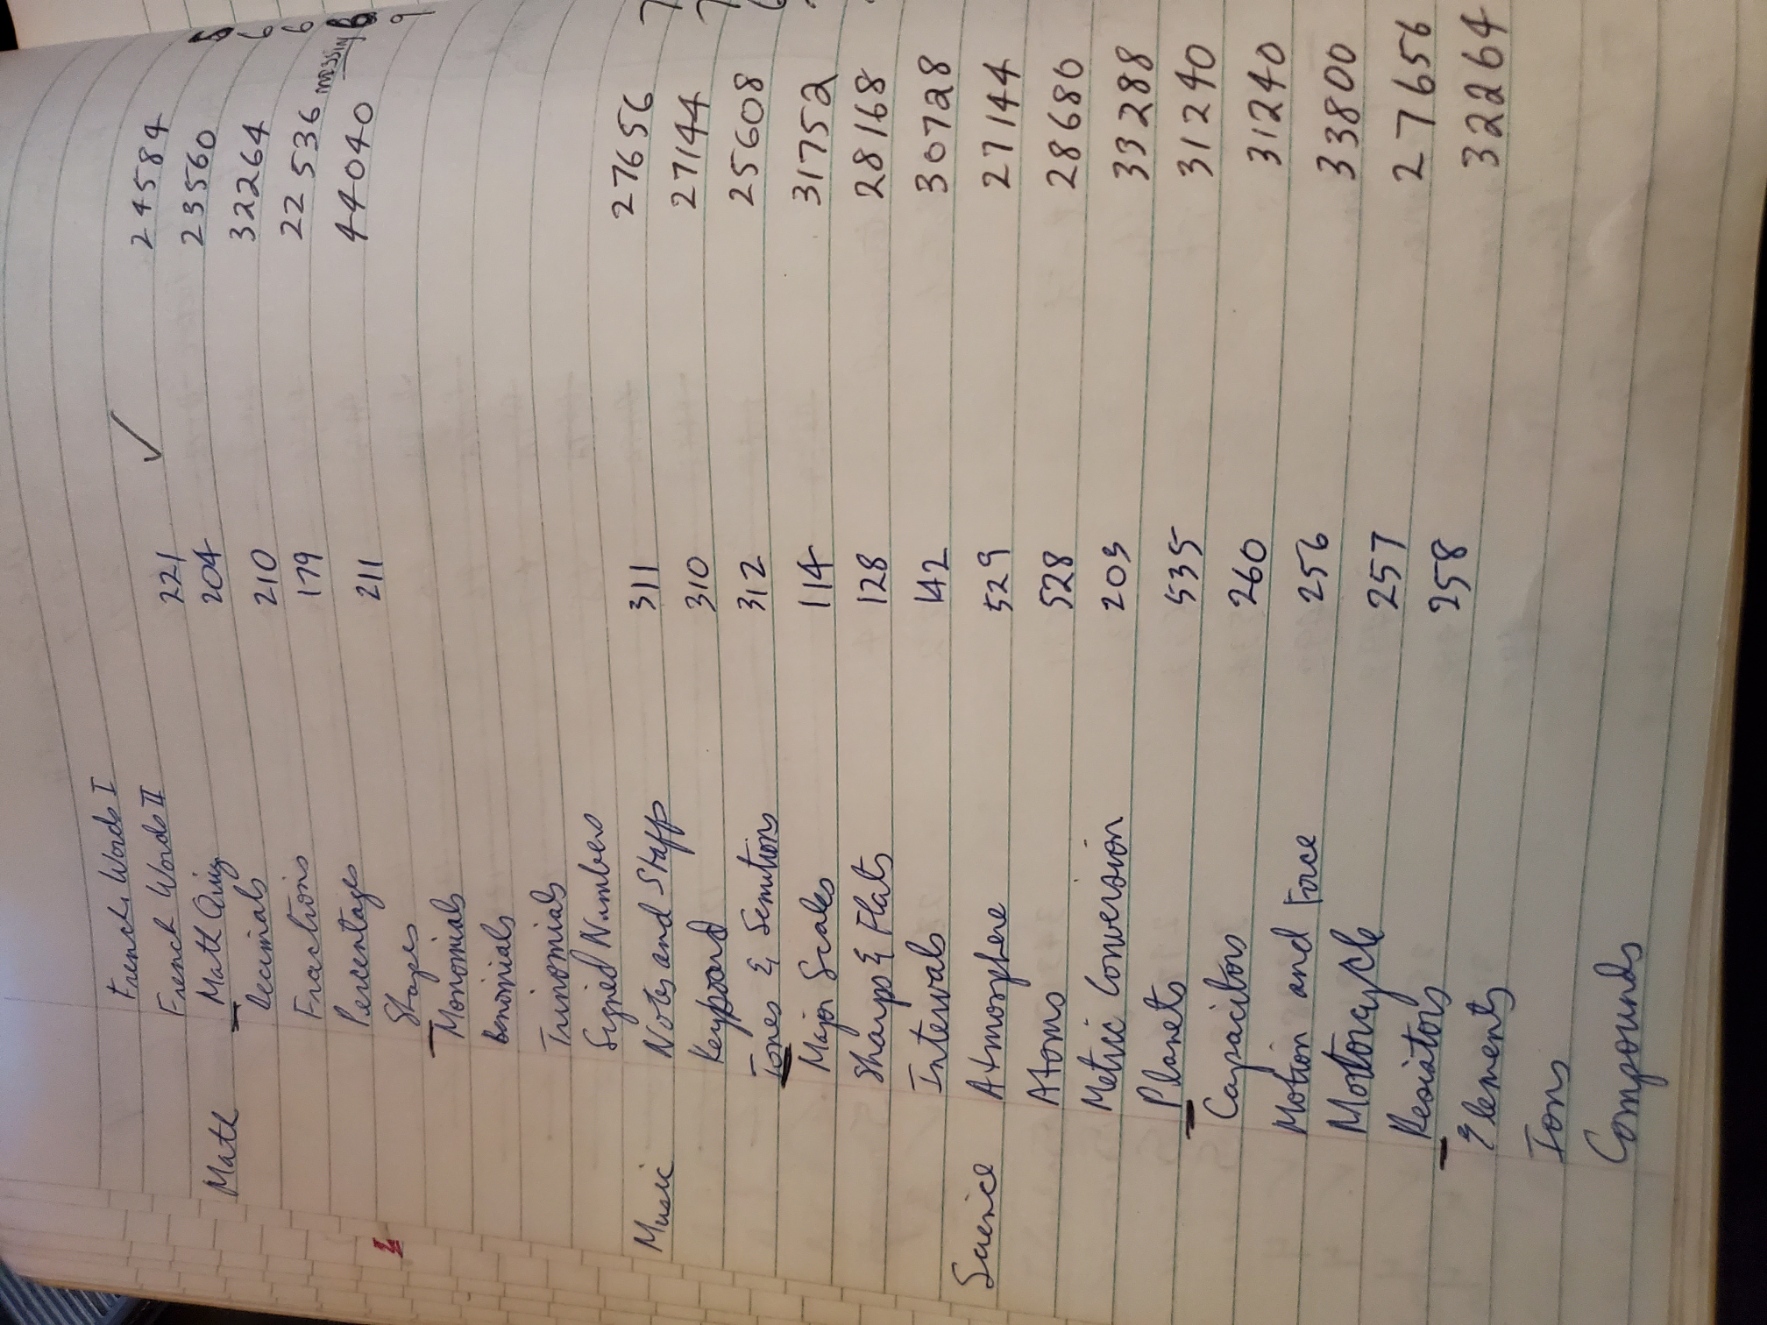 French Words I
French Words II 221 ✓ 24584 5
Math Math Quiz 204 23560 6
Decimals 210 32264 6
Fractions 179 22536 missing 6
Percentages 211 44040 9
Shapes
Monomials
Binomials
Trinomials
Signed Numbers
Music Notes and Staff 311 27656 7
Keyboard 310 27144 7
Tones & Semitions 312 25608
Major Scales 114 31752
Sharps & Flats 128 28168
Intervals 142 30728
Science Atmosphere 529 27144
Atoms 528 28680
Metric Conversion 203 33288
Planets 535 31240
Capacitors 260 31240
Motion and Force 256 33800
Motorcycle 257 27656
Resistors 258 32264
Elements
Ions
Compounds